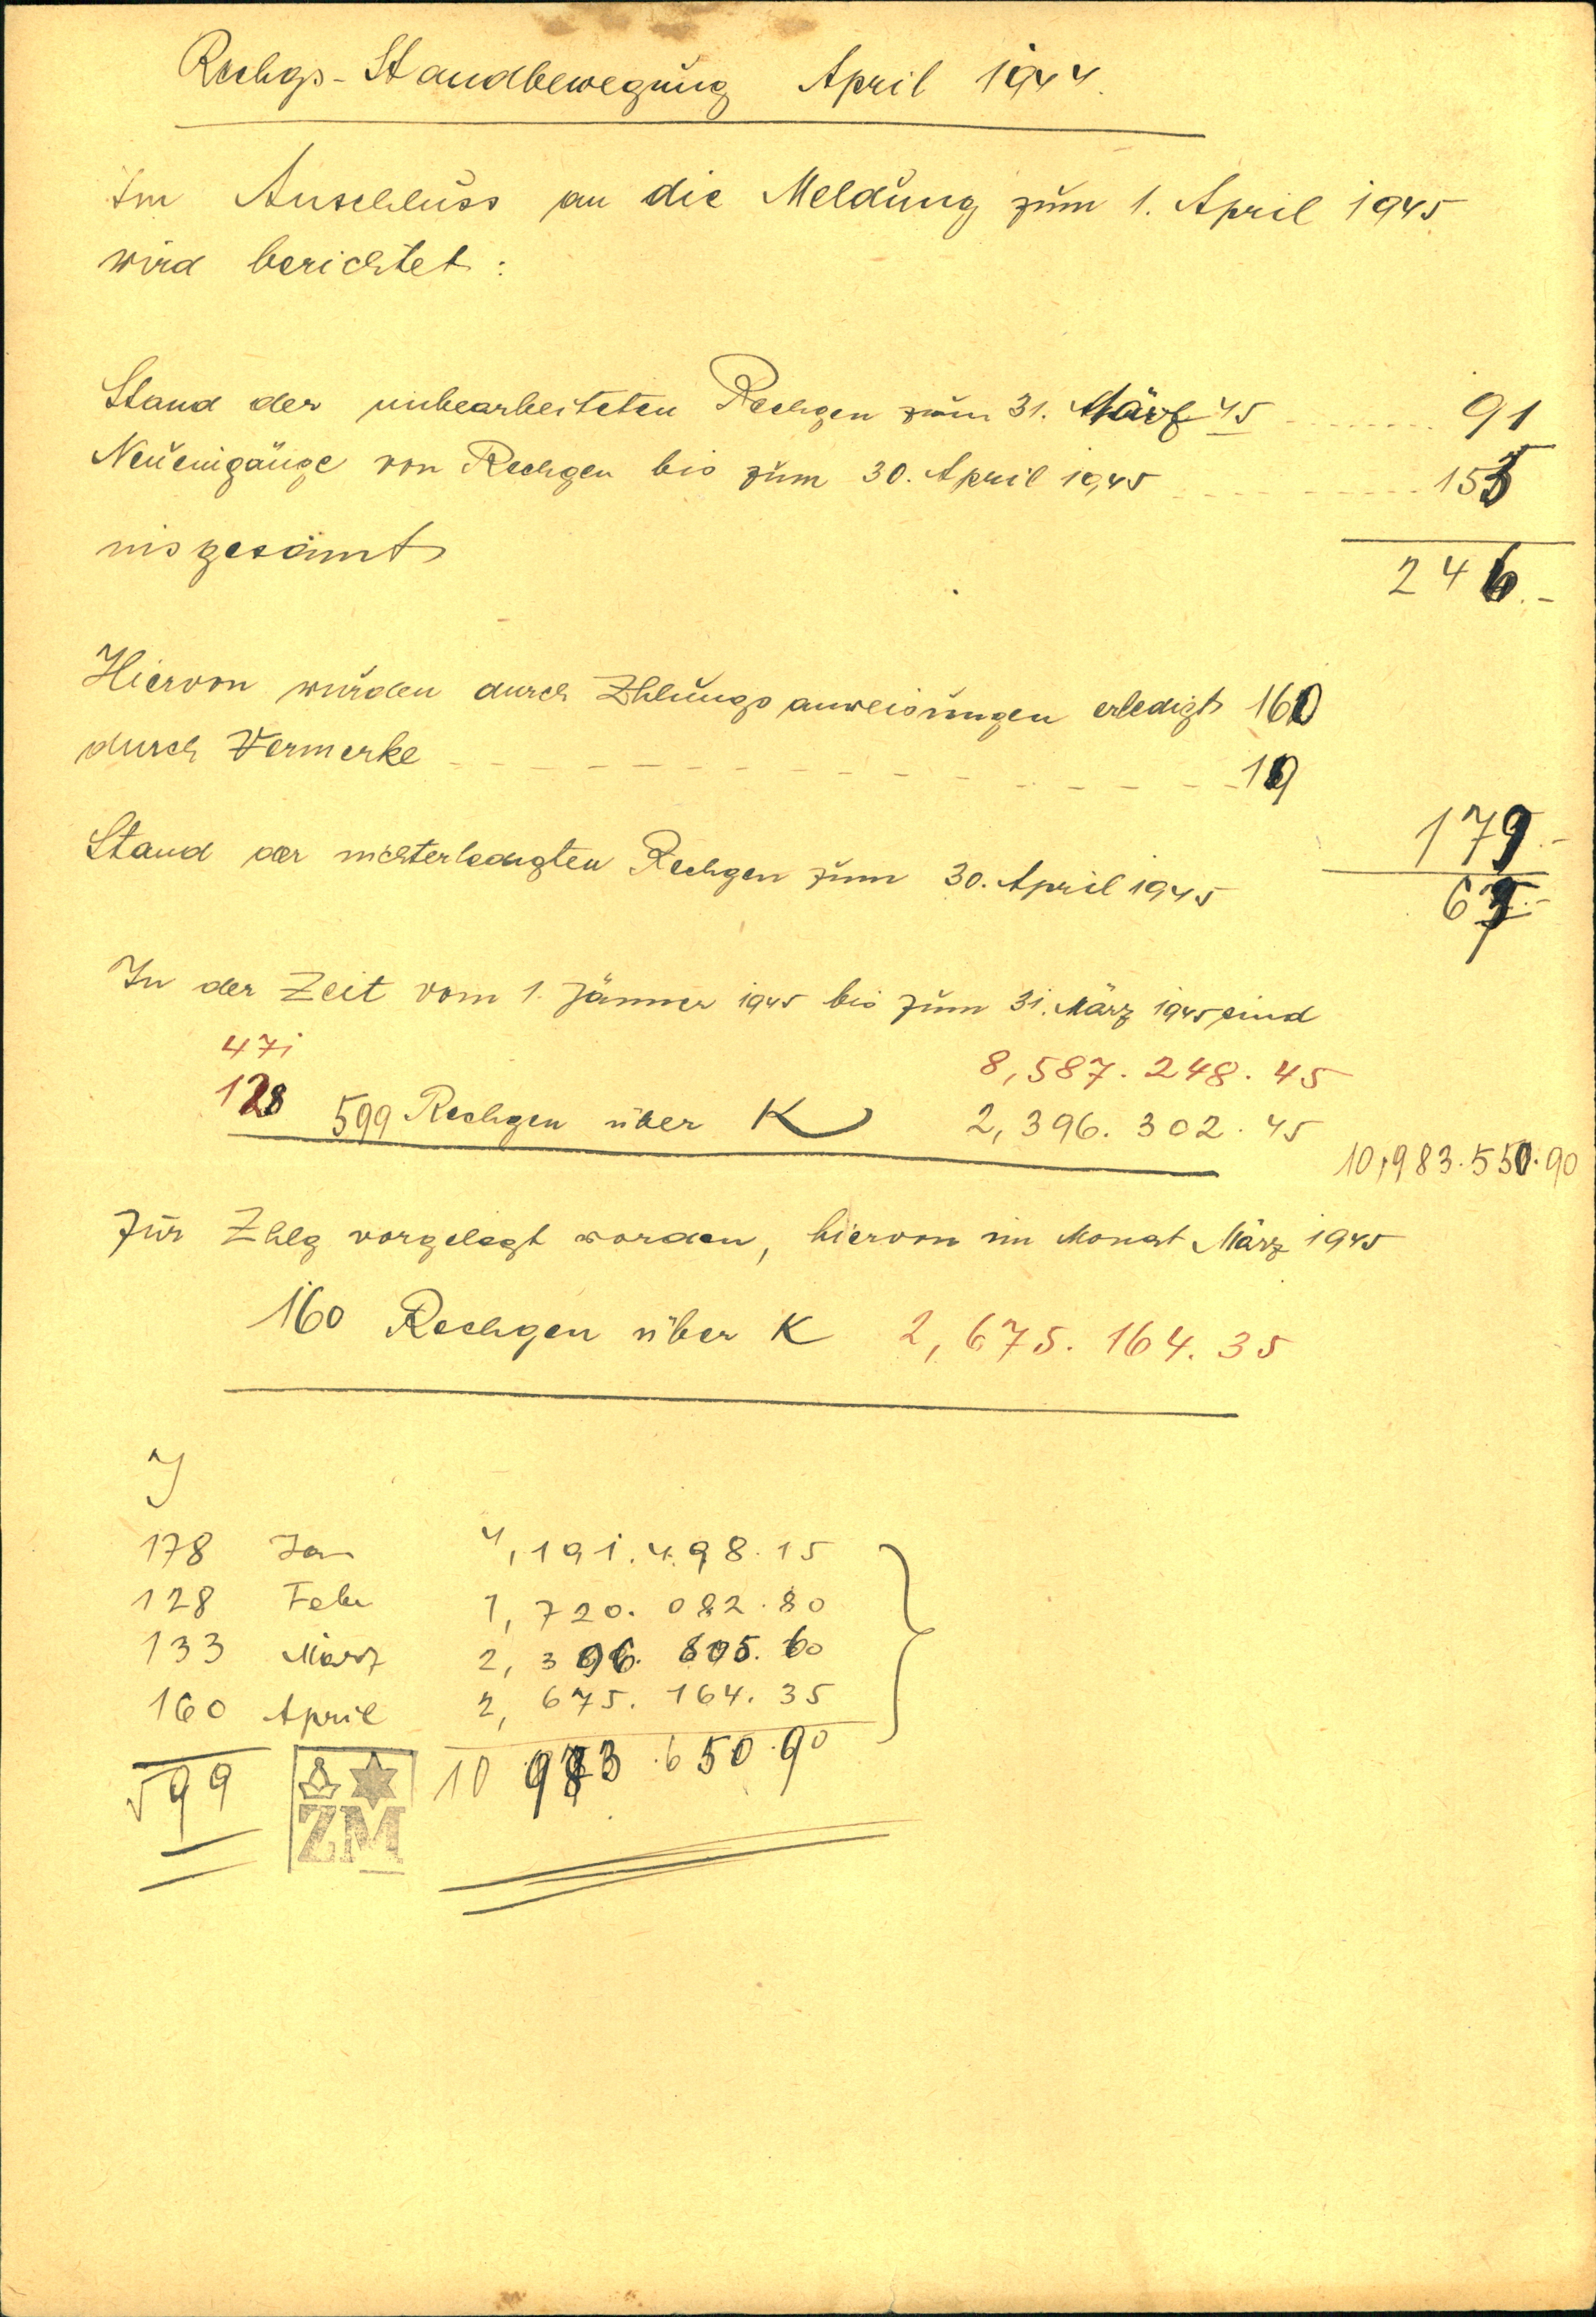 Rechgs-Standbewegung April 1944.
Im Anschluss an die Meldung zum 1. April 1945
wird berichtet:
Stand der unbearbeiteten Rechgen zum 31. März 45 ........ 91
Neueingänge von Rechgen bis zum 30. April 1945 - - - - - - - - 155
insgesamt
246.-
Hiervon wurden durch Zhlungsanweisungen erledigt 160
durch Vermerke - - - - - - - - - - - - - 19
179.-
Stand der nichterledigten Rechgen zum 30. April 1945
67.-
In der Zeit vom 1. Jänner 1945 bis zum 31. März 1945 sind
471 8,587.248.45
128 599 Rechgen über K 2,396.302.45
10,983.550.90
zur Zhlg vorgelegt worden, hiervon im Monat März 1945
160 Rechgen über K 2,675.164.35
J
178 Jan 4,191.498.15
128 Feber 1,720.082.80
133 März 2,396.805.60
160 April 2,675.164.35
599 10 983.550.90
ZM